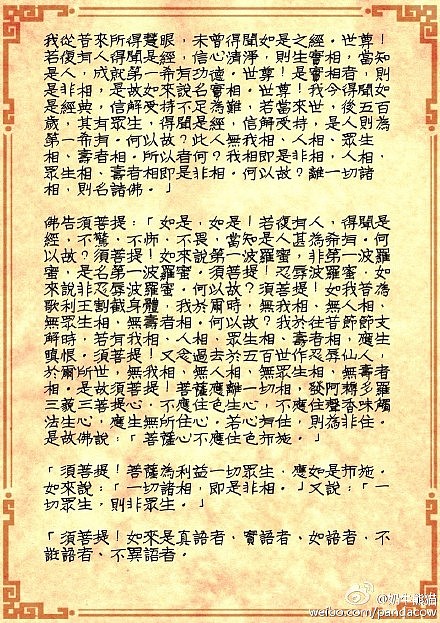 我從昔來所得慧眼，未曾得聞如是之經。世尊！
若復有人得聞是經，信心清淨，則生實相，當知
是人，成就第一希有功德。世尊！是實相者，則
是非相，是故如來說名實相。世尊！我今得聞如
是經典，信解受持不足為難，若當來世，後五百
歲，其有眾生，得聞是經，信解受持，是人則為
第一希有。何以故？此人無我相、人相、眾生
相、壽者相。所以者何？我相即是非相，人相、
眾生相、壽者相即是非相。何以故？離一切諸
相，則名諸佛。」
佛告須菩提：「如是，如是！若復有人，得聞是
經，不驚，不怖，不畏，當知是人甚為希有。何
以故？須菩提！如來說第一波羅蜜，非第一波羅
蜜，是名第一波羅蜜。須菩提！忍辱波羅蜜，如
來說非忍辱波羅蜜。何以故？須菩提！如我昔為
歌利王割截身體，我於爾時，無我相、無人相、
無眾生相，無壽者相。何以故？我於往昔節節支
解時，若有我相、人相、眾生相、壽者相，應生
瞋恨。須菩提！又念過去於五百世作忍辱仙人，
於爾所世，無我相、無人相，無眾生相，無壽者
相。是故須菩提！菩薩應離一切相，發阿耨多羅
三藐三菩提心，不應住色生心，不應住聲香味觸
法生心，應生無所住心。若心有住，則為非住。
是故佛說：「菩薩心不應住色布施。」
「須菩提！菩薩為利益一切眾生，應如是布施。
如來說：「一切諸相，即是非相。」又說：「一
切眾生，則非眾生。」
「須菩提！如來是真語者、實語者、如語者、不
誑語者、不異語者。
weibo.com/pandacow